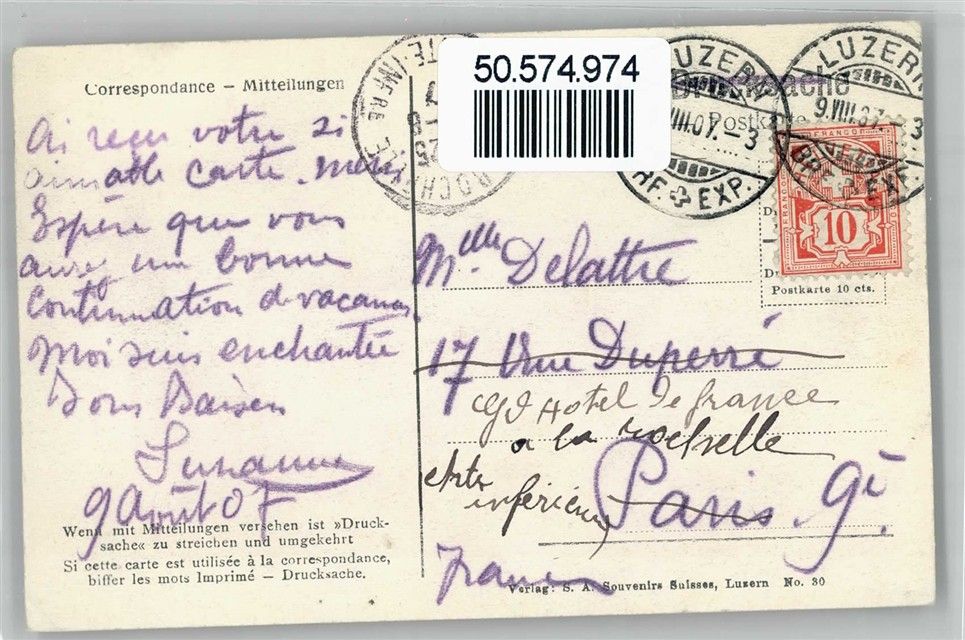 50.574.974
Correspondance – Mitteilungen
Ai reçu votre si
aimable carte. merci
Espère que vous
avez une bonne
Continuation de vacances
Moi suis enchantée
Bons Baisers
Suzanne
9 Août 07
Wenn mit Mitteilungen versehen ist »Druck-
sache« zu streichen und umgekehrt
Si cette carte est utilisée à la correspondance,
biffer les mots Imprimé – Drucksache.
LUZERN
VIII.07. – 3
BRF. EXP.
LUZERN
9.VIII.07. – 3
BRF. EXP.
Drucksache
Postkarte
10
Postkarte 10 cts.
Mlle Delattre
17 Rue Duperré
Gd Hotel de france
a la rochelle
chte
inférieure
Paris 9e
France
Verlag: S. A. Souvenirs Suisses, Luzern No. 30